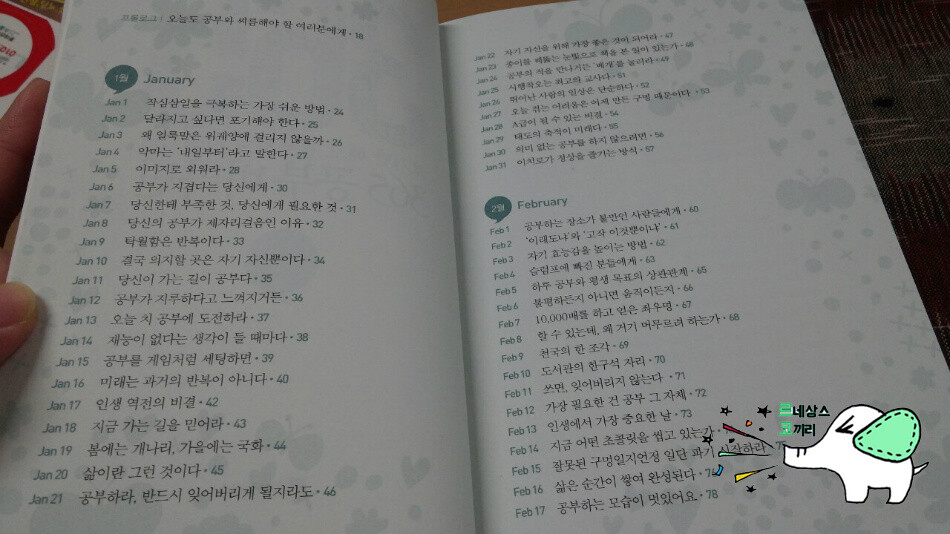 프롤로그 | 오늘도 공부와 씨름해야 할 여러분에게 · 18
1월 January
Jan 1 작심삼일을 극복하는 가장 쉬운 방법 · 24
Jan 2 달라지고 싶다면 포기해야 한다 · 25
Jan 3 왜 얼룩말은 위궤양에 걸리지 않을까 · 26
Jan 4 악마는 '내일부터'라고 말한다 · 27
Jan 5 이미지로 외워라 · 28
Jan 6 공부가 지겹다는 당신에게 · 30
Jan 7 당신한테 부족한 것, 당신에게 필요한 것 · 31
Jan 8 당신의 공부가 제자리걸음인 이유 · 32
Jan 9 탁월함은 반복이다 · 33
Jan 10 결국 의지할 곳은 자기 자신뿐이다 · 34
Jan 11 당신이 가는 길이 공부다 · 35
Jan 12 공부가 지루하다고 느껴지거든 · 36
Jan 13 오늘 치 공부에 도전하라 · 37
Jan 14 재능이 없다는 생각이 들 때마다 · 38
Jan 15 공부를 게임처럼 세팅하면 · 39
Jan 16 미래는 과거의 반복이 아니다 · 40
Jan 17 인생 역전의 비결 · 42
Jan 18 지금 가는 길을 믿어라 · 43
Jan 19 봄에는 개나리, 가을에는 국화 · 44
Jan 20 삶이란 그런 것이다 · 45
Jan 21 공부하라, 반드시 잊어버리게 될지라도 · 46
Jan 22 자기 자신을 위해 가장 좋은 것이 되어라 · 47
Jan 23 종이를 꿰뚫는 눈빛으로 책을 본 일이 있는가 · 48
Jan 24 공부의 적을 만나거든 '베개'를 눌러라 · 49
Jan 25 시행착오는 최고의 교사다 · 51
Jan 26 뛰어난 사람의 일상은 단순하다 · 52
Jan 27 오늘 겪는 어려움은 어제 만든 구멍 때문이다 · 53
Jan 28 A급이 될 수 있는 비결 · 54
Jan 29 태도의 축적이 미래다 · 55
Jan 30 의미 없는 공부를 하지 않으려면 · 56
Jan 31 이치로가 정상을 즐기는 방식 · 57
2월 February
Feb 1 공부하는 장소가 불만인 사람들에게 · 60
Feb 2 '이래도냐'와 '고작 이것뿐이냐' · 61
Feb 3 자기 효능감을 높이는 방법 · 62
Feb 4 슬럼프에 빠진 분들에게 · 63
Feb 5 하루 공부와 평생 목표의 상관관계 · 65
Feb 6 불평하든지 아니면 움직이든지 · 66
Feb 7 10,000배를 하고 얻은 좌우명 · 67
Feb 8 할 수 있는데, 왜 거기 머무르려 하는가 · 68
Feb 9 천국의 한 조각 · 69
Feb 10 도서관의 한구석 자리 · 70
Feb 11 쓰면, 잊어버리지 않는다 · 71
Feb 12 가장 필요한 건 공부 그 자체 · 72
Feb 13 인생에서 가장 중요한 날 · 73
Feb 14 지금 어떤 초콜릿을 씹고 있는가 ·
Feb 15 잘못된 구멍일지언정 일단 파기 시작하라
Feb 16 삶은 순간이 쌓여 완성된다 ·
Feb 17 공부하는 모습이 멋있어요 · 78
르네상스
코끼리